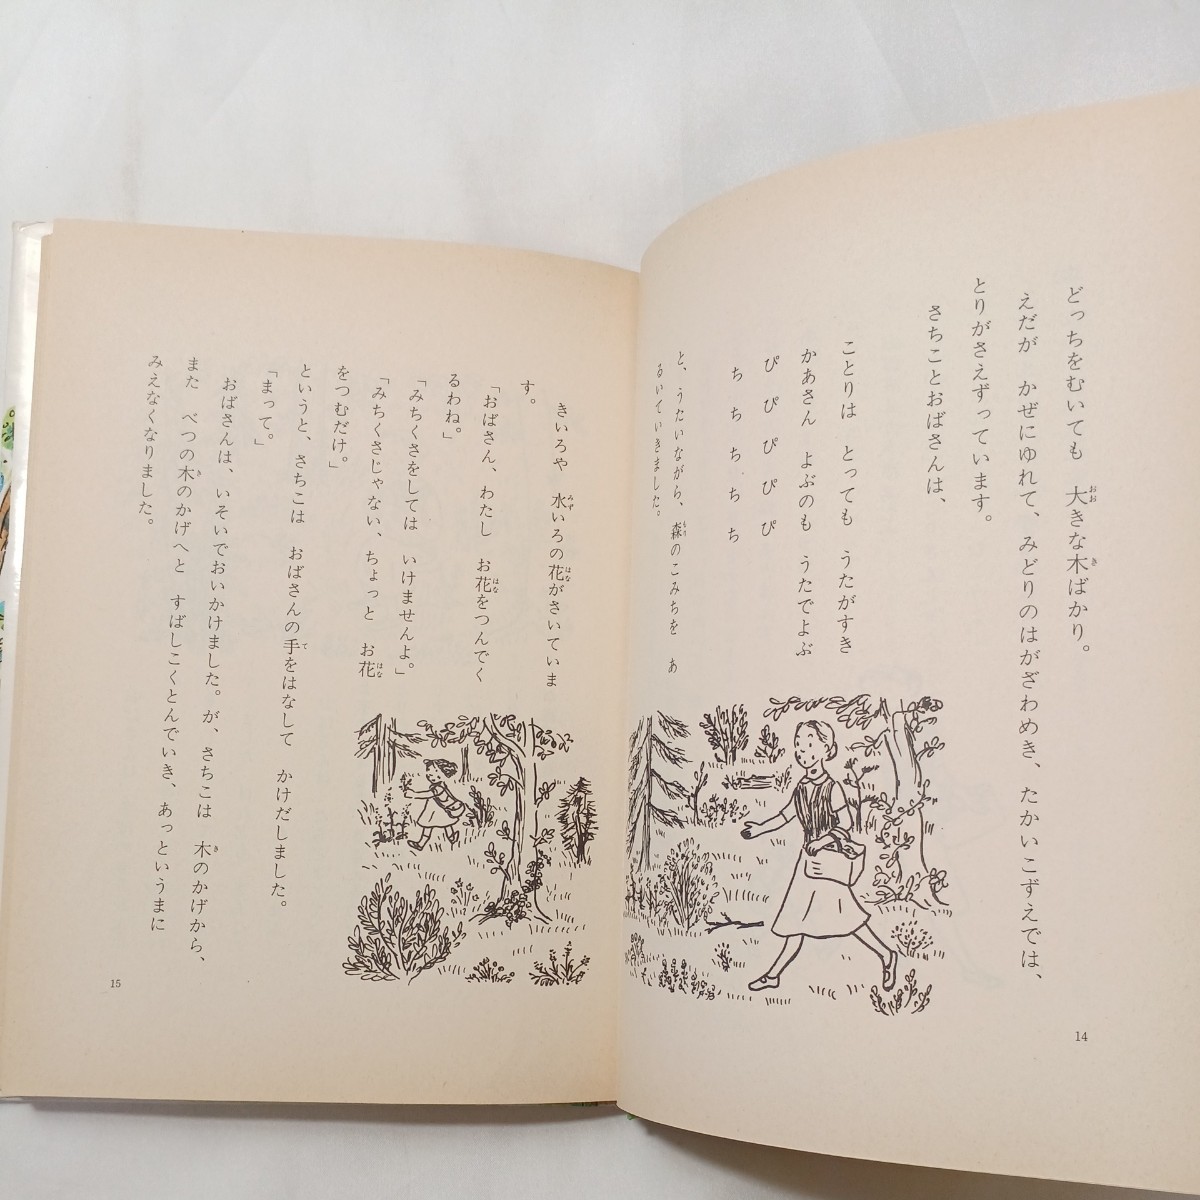 どっちをむいても　大きな木ばかり。
えだが　かぜにゆれて、みどりのはがざわめき、たかいこずえでは、
とりがさえずっています。
さちことおばさんは、
ことりは　とっても　うたがすき
かあさん　よぶのも　うたでよぶ
ぴ　ぴ　ぴ　ぴ　ぴ
ち　ち　ち　ち　ち
と、うたいながら、森のこみちを　あ
るいていきました。
14
きいろや　水いろの花がさいていま
す。
「おばさん、わたし　お花をつんでく
るわね。」
「みちくさをしては　いけませんよ。」
「みちくさじゃない、ちょっと　お花
をつむだけ。」
というと、さちこは　おばさんの手をはなして　かけだしました。
「まって。」
おばさんは、いそいでおいかけました。が、さちこは　木のかげから、
また　べつの木のかげへと　すばしこくとんでいき、あっというまに
みえなくなりました。
15